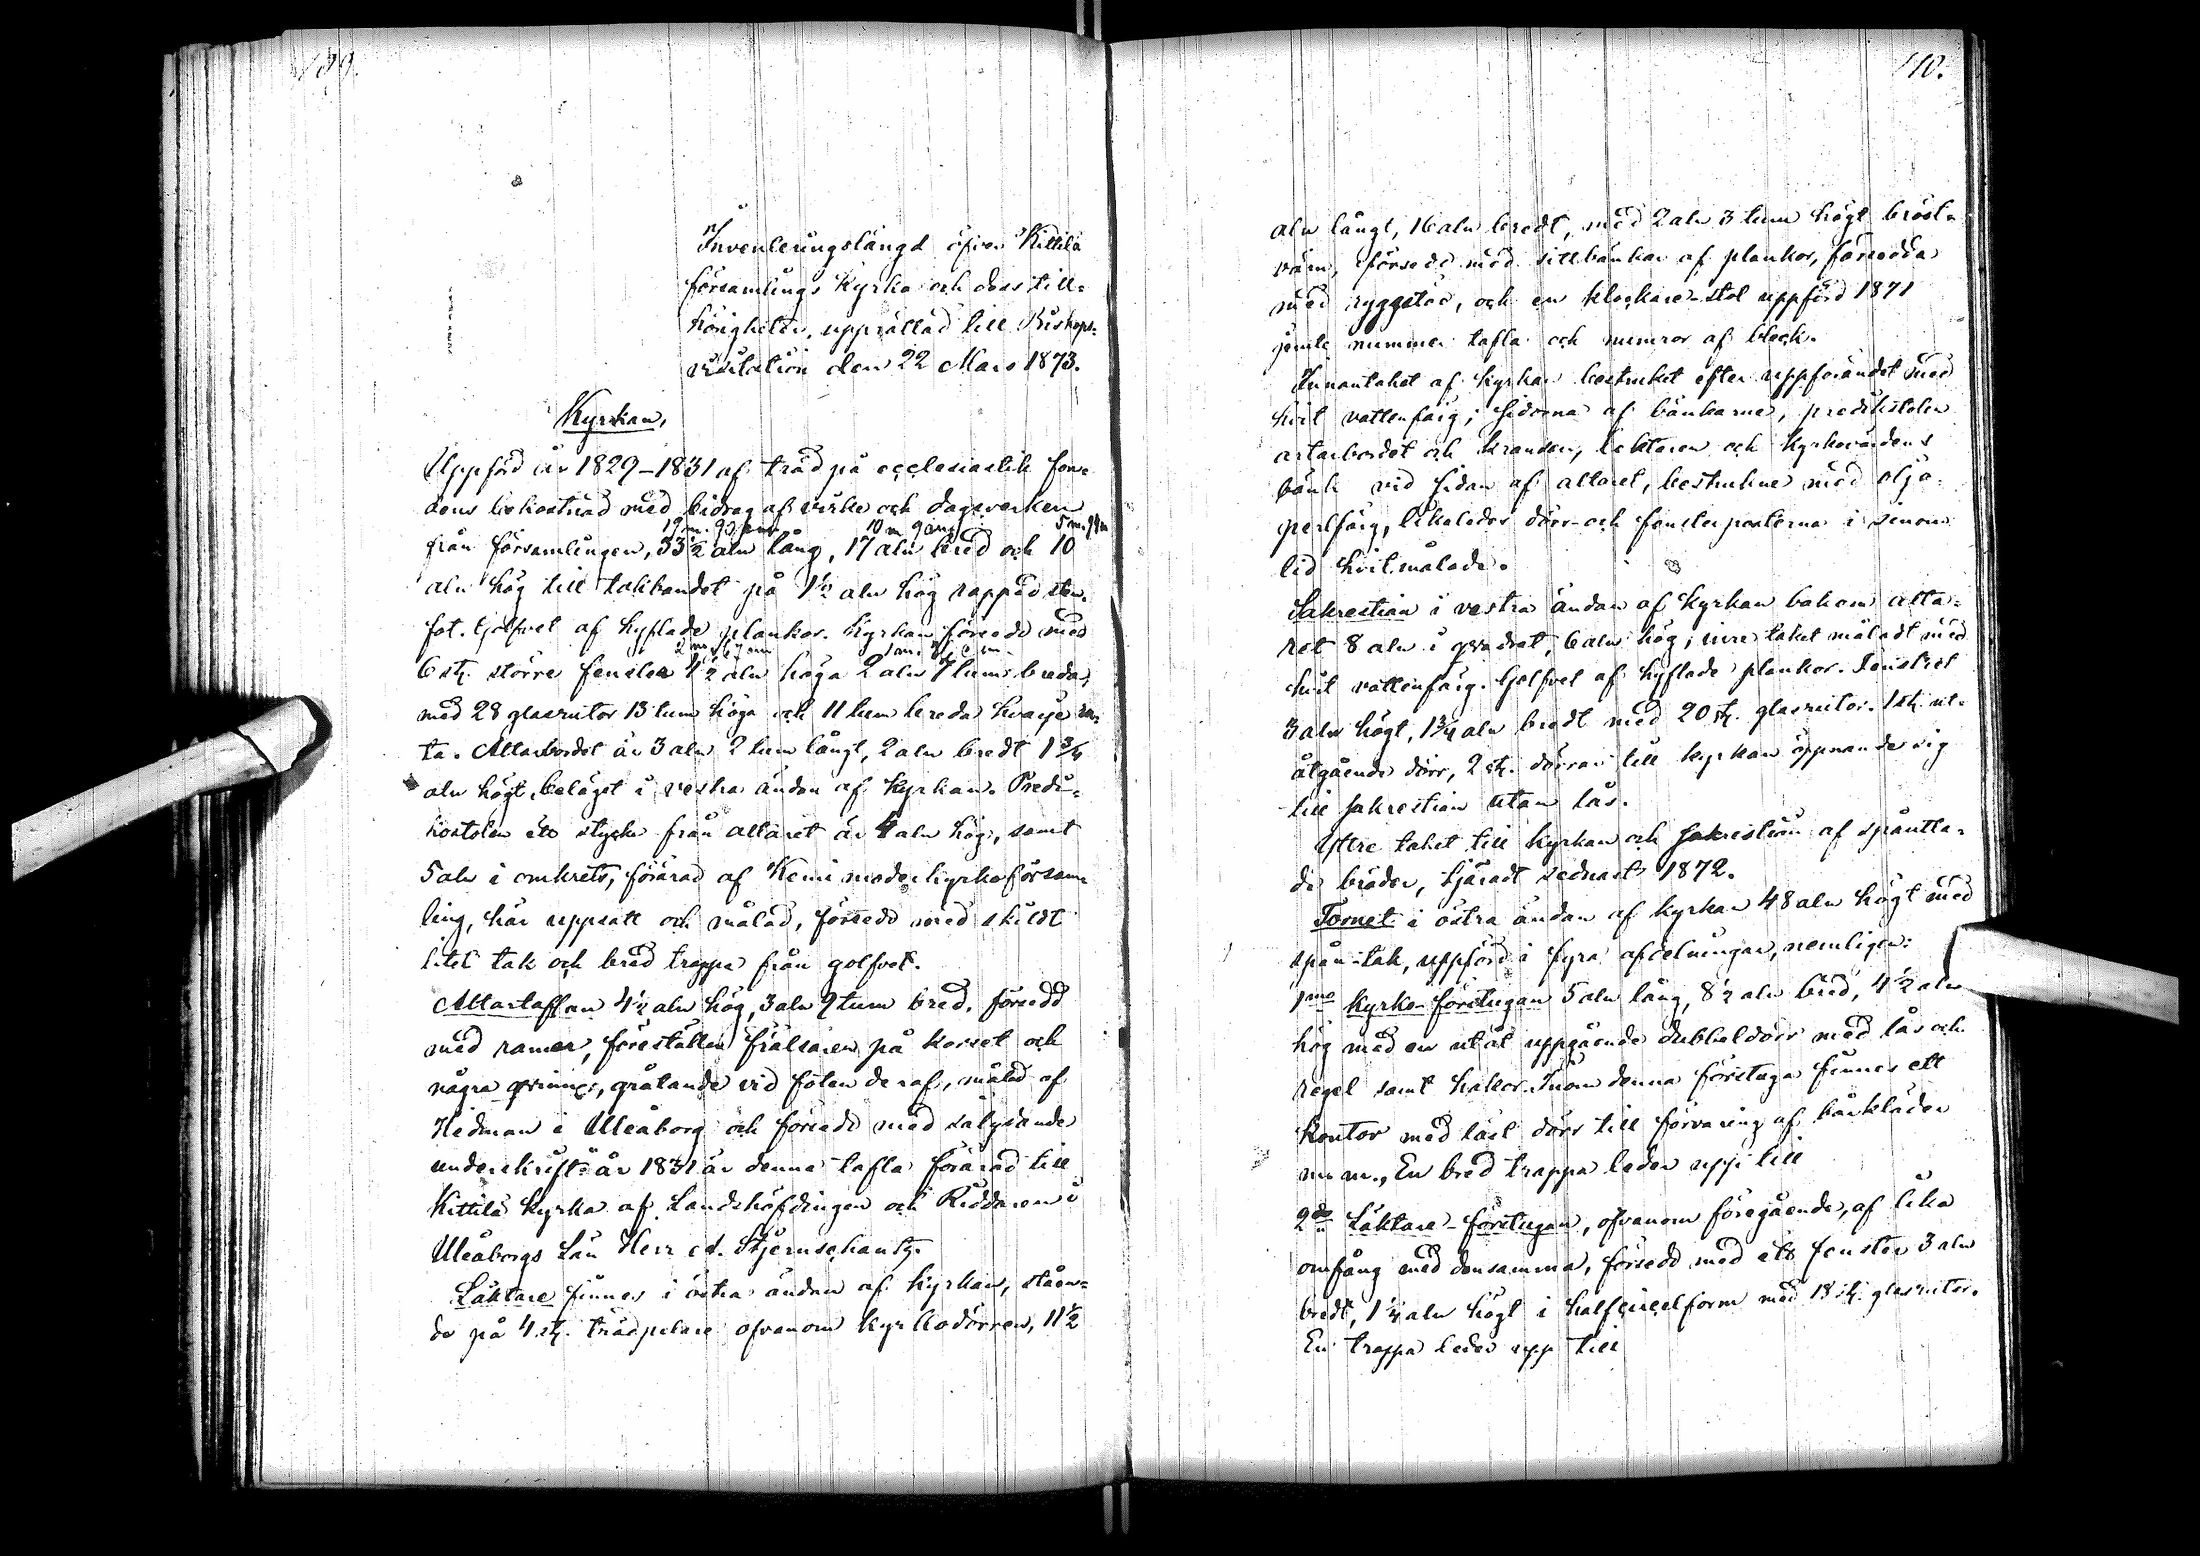 109.
Inventeringslängd öfver Kittilä
församlings Kyrka och dess till-
hörigheter, upprättad till Biskops-
visitation den 22 Mars 1873.
Kyrkan,
Uppförd år 1829-1831 af träd på ecclesiastik fon-
dens bekostnad med bidrag af virke och dagsverken
19 m. 10 m. 9 5 m.
från församlingen, 33½ aln lång, 17 aln bred och 10
aln hög till takbandet på 1½ aln hög rappad sten-
fot. Golfvet af hyflade plankor. Kyrkan försedd med
2 m. 1 m.
6 st. större fenster 4½ aln höga 2 aln 7 tum breda,
med 28 glasrutor 13 tum höga och 11 tum breda hvarje ru-
ta. Altarbordet är 3 aln 2 tum långt, 2 aln bredt 1¾
aln högt, beläget i vestra ändan af Kyrkan. Predi-
kostolen ett stycke från altaret är 4 aln hög, samt
5 aln i omkrets, förärad af Kemi moderkyrkoförsam-
ling, här uppsatt och målad, försedd med skildt
litet tak och bred trappa från golfvet.
Altartaflan 4½ aln hög, 3 aln 9 tum bred, försedd
med ramar, föreställer Frälsaren på korset och
några qvinnor, gråtande vid foten deraf, målad af
Hedman i Uleåborg och försedd med sålydande
underskrift: år 1831 är denna tafla förärad till
Kittilä Kyrka af Landshöfdingen och Riddaren i
Uleåborgs Län Herr Stjernschantz.
Läktare finnes i östra ändan af Kyrkan, ståen-
de på 4 st. trädpelare ofvanom Kyrkodörren, 11½
110.
aln långt, 16 aln bredt, med 2 aln 3 tum högt bröst-
värn, försedd med sittbänkar af plankor, försedda
med ryggstöd, och en klockare-stol uppförd 1871
jemte nummer tafla och numror af bleck.
Innantaket af Kyrkan bestruket efter uppförandet med
hvit vattenfärg; sidorna af bänkarne, predikstolen
altarbordet och kransen, lektaren och Kyrkovärdens
bänk vid sidan af altaret, bestrukne med olje-
perlfärg, likaledes dörr- och fensterposterna i senare
tid hvitmålade.
Sakrestian i vestra ändan af Kyrkan bakom alta-
ret 8 aln i qvadrat, 6 aln hög; inre taket måladt med
hvit vattenfärg. Golfvet af hyflade plankor. Fenstret
3 aln högt, 1¾ aln bredt med 20 st. glasrutor. 1 st. ut-
åtgående dörr, 2 st. dörrar till kyrkan öppnande sig
till sakrestian utan lås.
Yttre taket till kyrkan och sakrestian af spåntta-
de bräder, tjäradt sednast 1872.
Tornet i östra ändan af kyrkan 48 aln högt med
spån-tak, uppförd i fyra afdelningar, nemligen:
1mo Kyrko-förstugan 5 aln lång, 8½ aln bred, 4½ aln
hög med en utåt uppgående dubbeldörr med lås och
regel samt hakor. Inom denna förstuga finnes ett
Kontor med låst dörr till förvaring af bårkläden
m. m., En bred trappa leder upp till
2do Läktare-förstugan, ofvanom föregående, af lika
omfång med densamma, försedd med ett fenster 3 aln
bredt, 1¼ aln högt i halfcirkelform med 18 st. glasrutor.
En trappa leder upp till